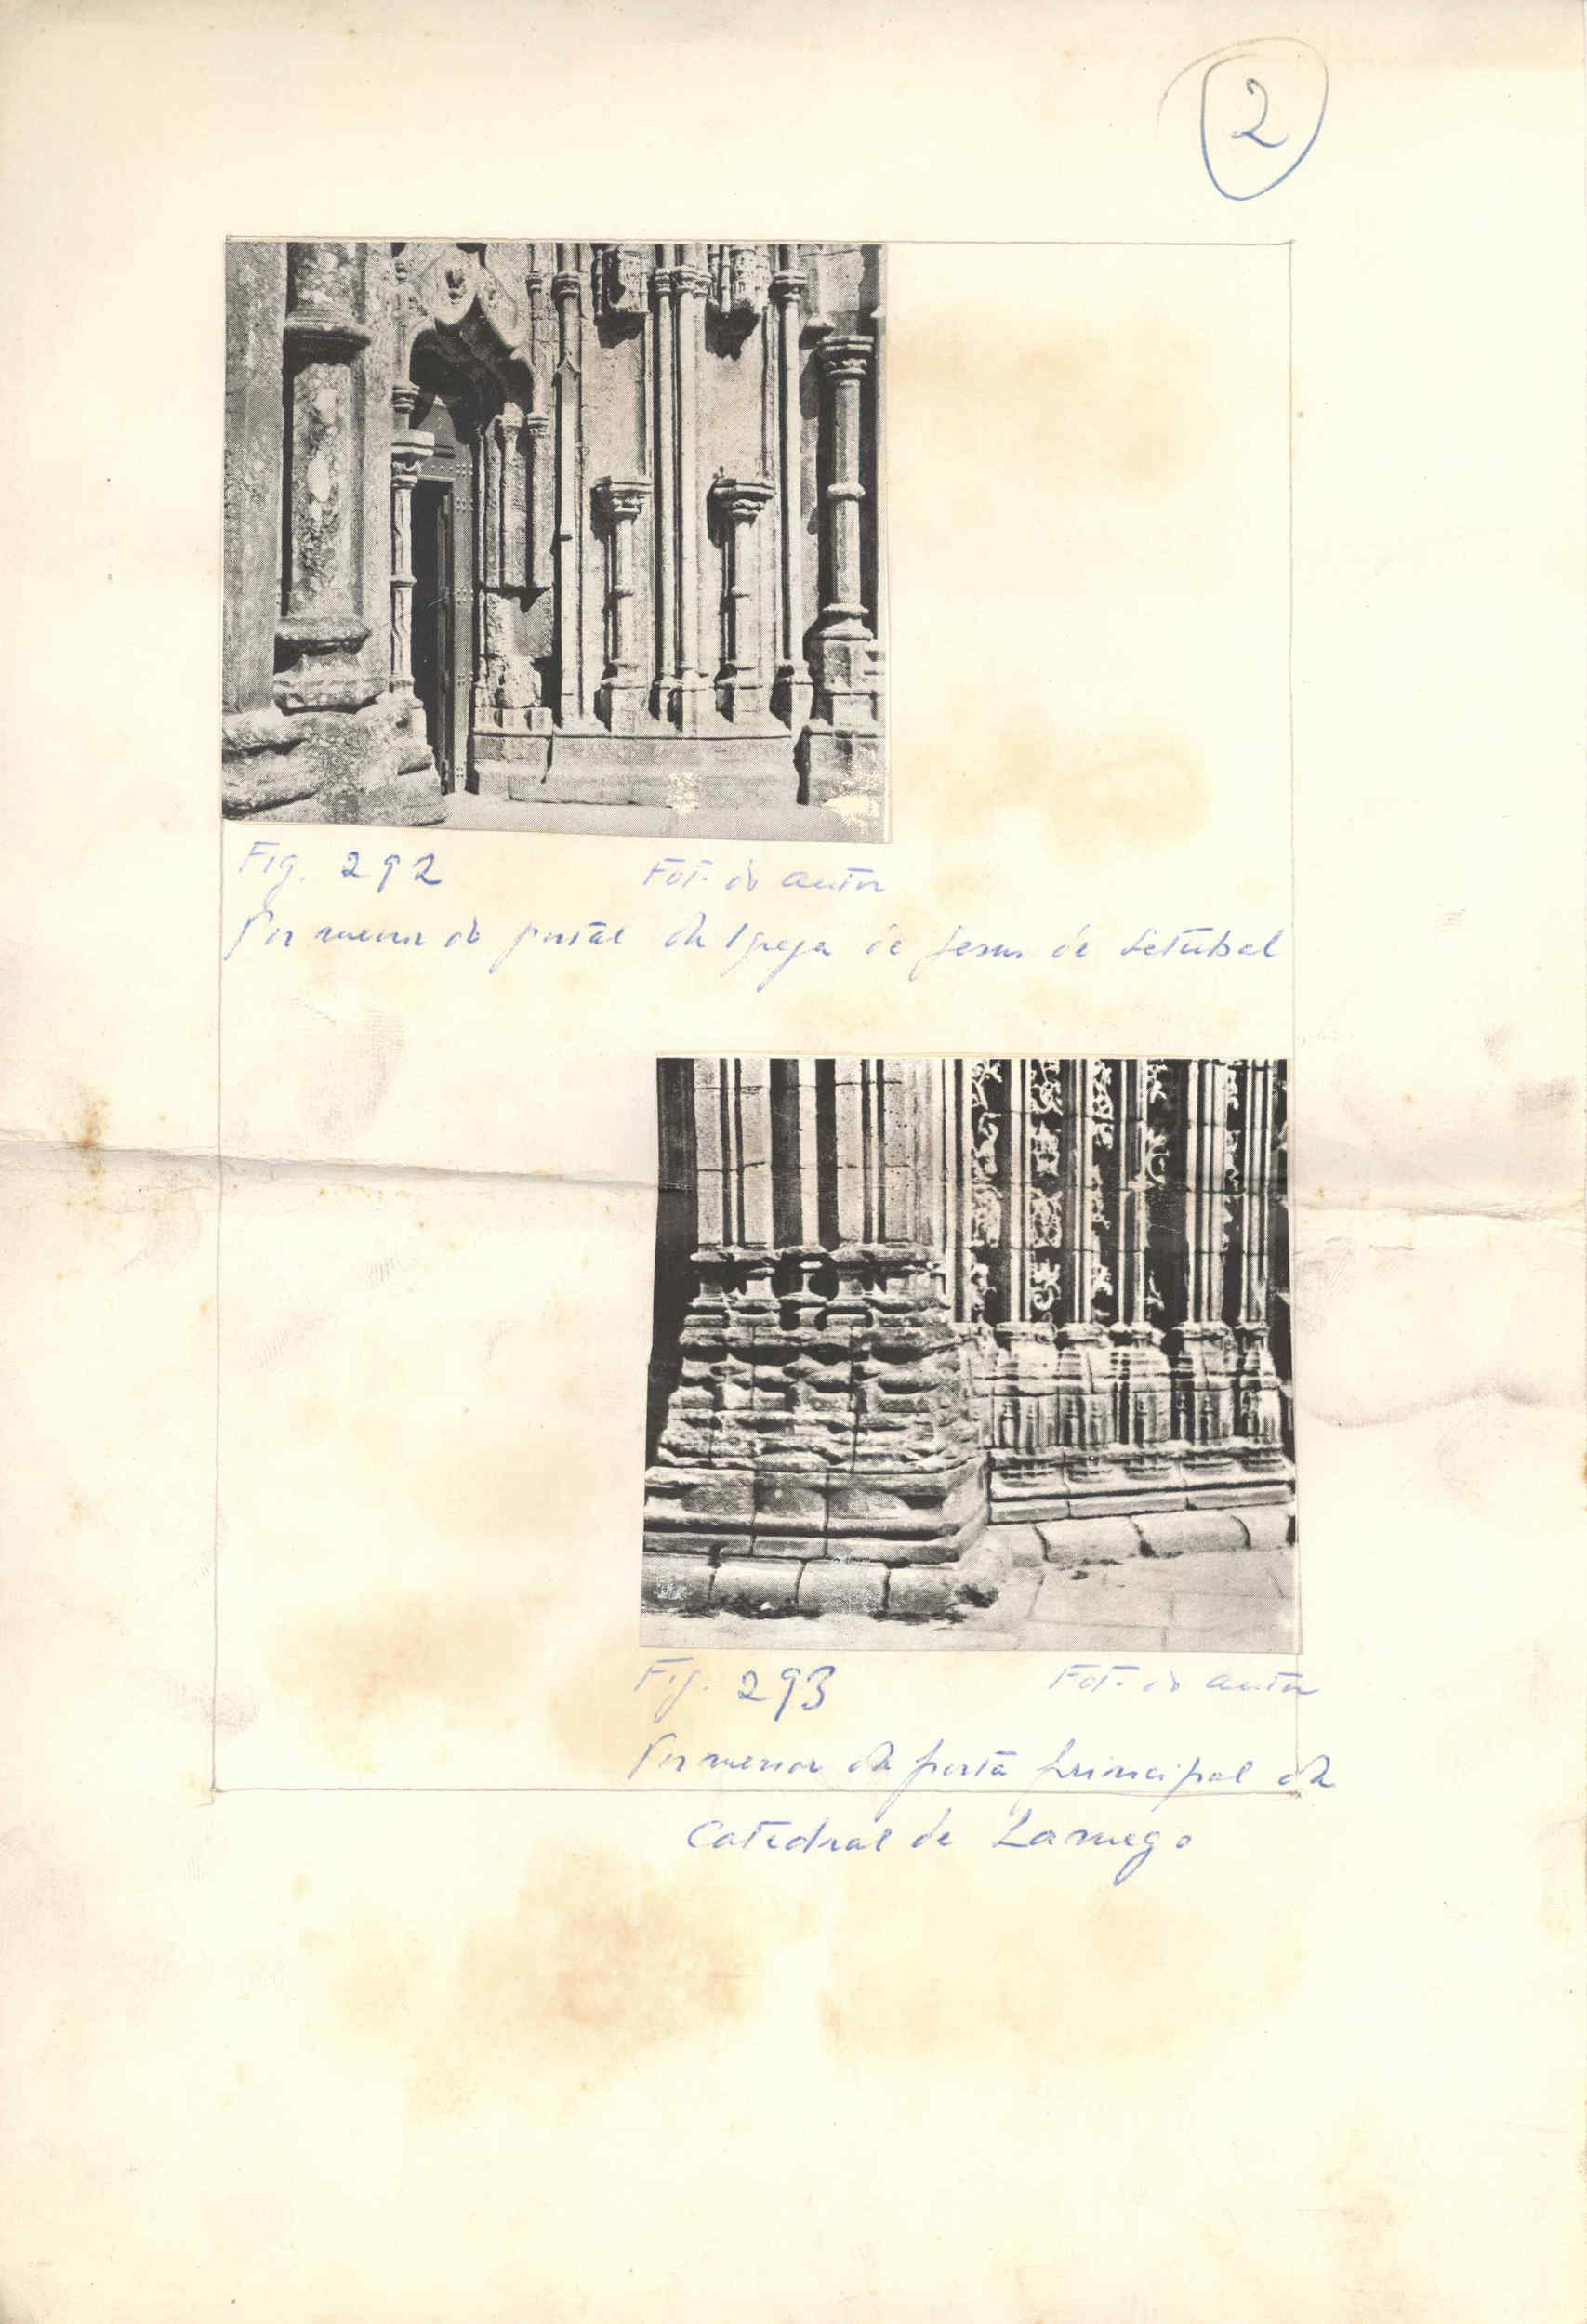 2
Fig. 292 Fot. do autor
Pormenor do portal da Igreja de Jesus de Setubal
Fig. 293 Fot. do autor
Pormenor da porta principal da
Catedral de Lamego